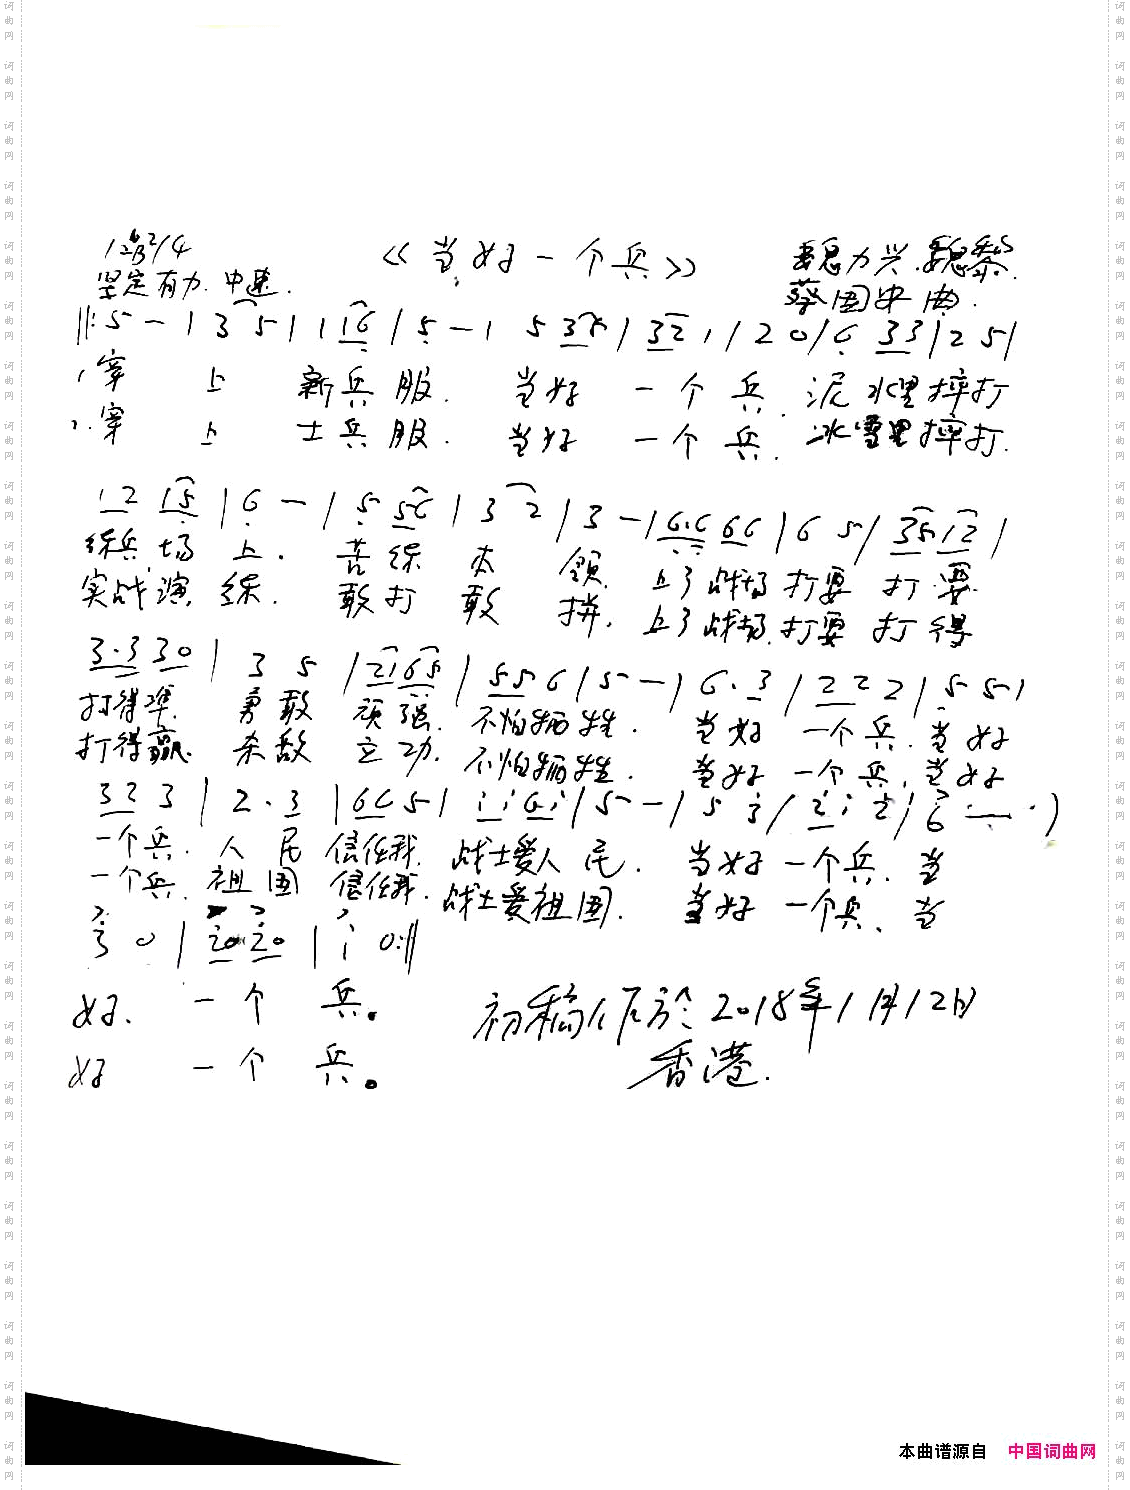 《当好一个兵》
坚定有力.中速.
魏力兴.魏黎.
蔡国中曲.
‖:5 — | 3 5 | 1 16 | 5 — | 5 35 | 32 1 | 2 0 | 6 33 | 2 5 |
1.穿 上 新兵服. 当好 一个兵. 泥水里摔打
2.穿 上 士兵服. 当好 一个兵. 冰雪里摔打.
12 15 | 6 — | 5 56 | 3 2 | 3 — | 6.6 66 | 6 5 | 35 12 |
练兵场上. 苦练本领. 上了战场打要打要
实战演练. 敢打敢拼. 上了战场.打要打得
3.3 30 | 3 5 | 21 65 | 55 6 | 5 — | 6. 3 | 22 2 | 5 5 |
打得準. 勇敢顽强. 不怕牺牲. 当好一个兵. 当好
打得赢. 杀敌立功. 不怕牺牲. 当好一个兵. 当好
32 3 | 2. 3 | 66 5 | i i 6 i | 5 — | 5 3 | 2 i 2 | 6 — |
一个兵. 人民信任我. 战士爱人民. 当好一个兵. 当
一个兵. 祖国信任我. 战士爱祖国. 当好一个兵. 当
3 0 | 20 20 | i 0 :‖
好. 一个兵。
好 一个兵。
初稿作於2018年1月12日
香港.
本曲谱源自 中国词曲网